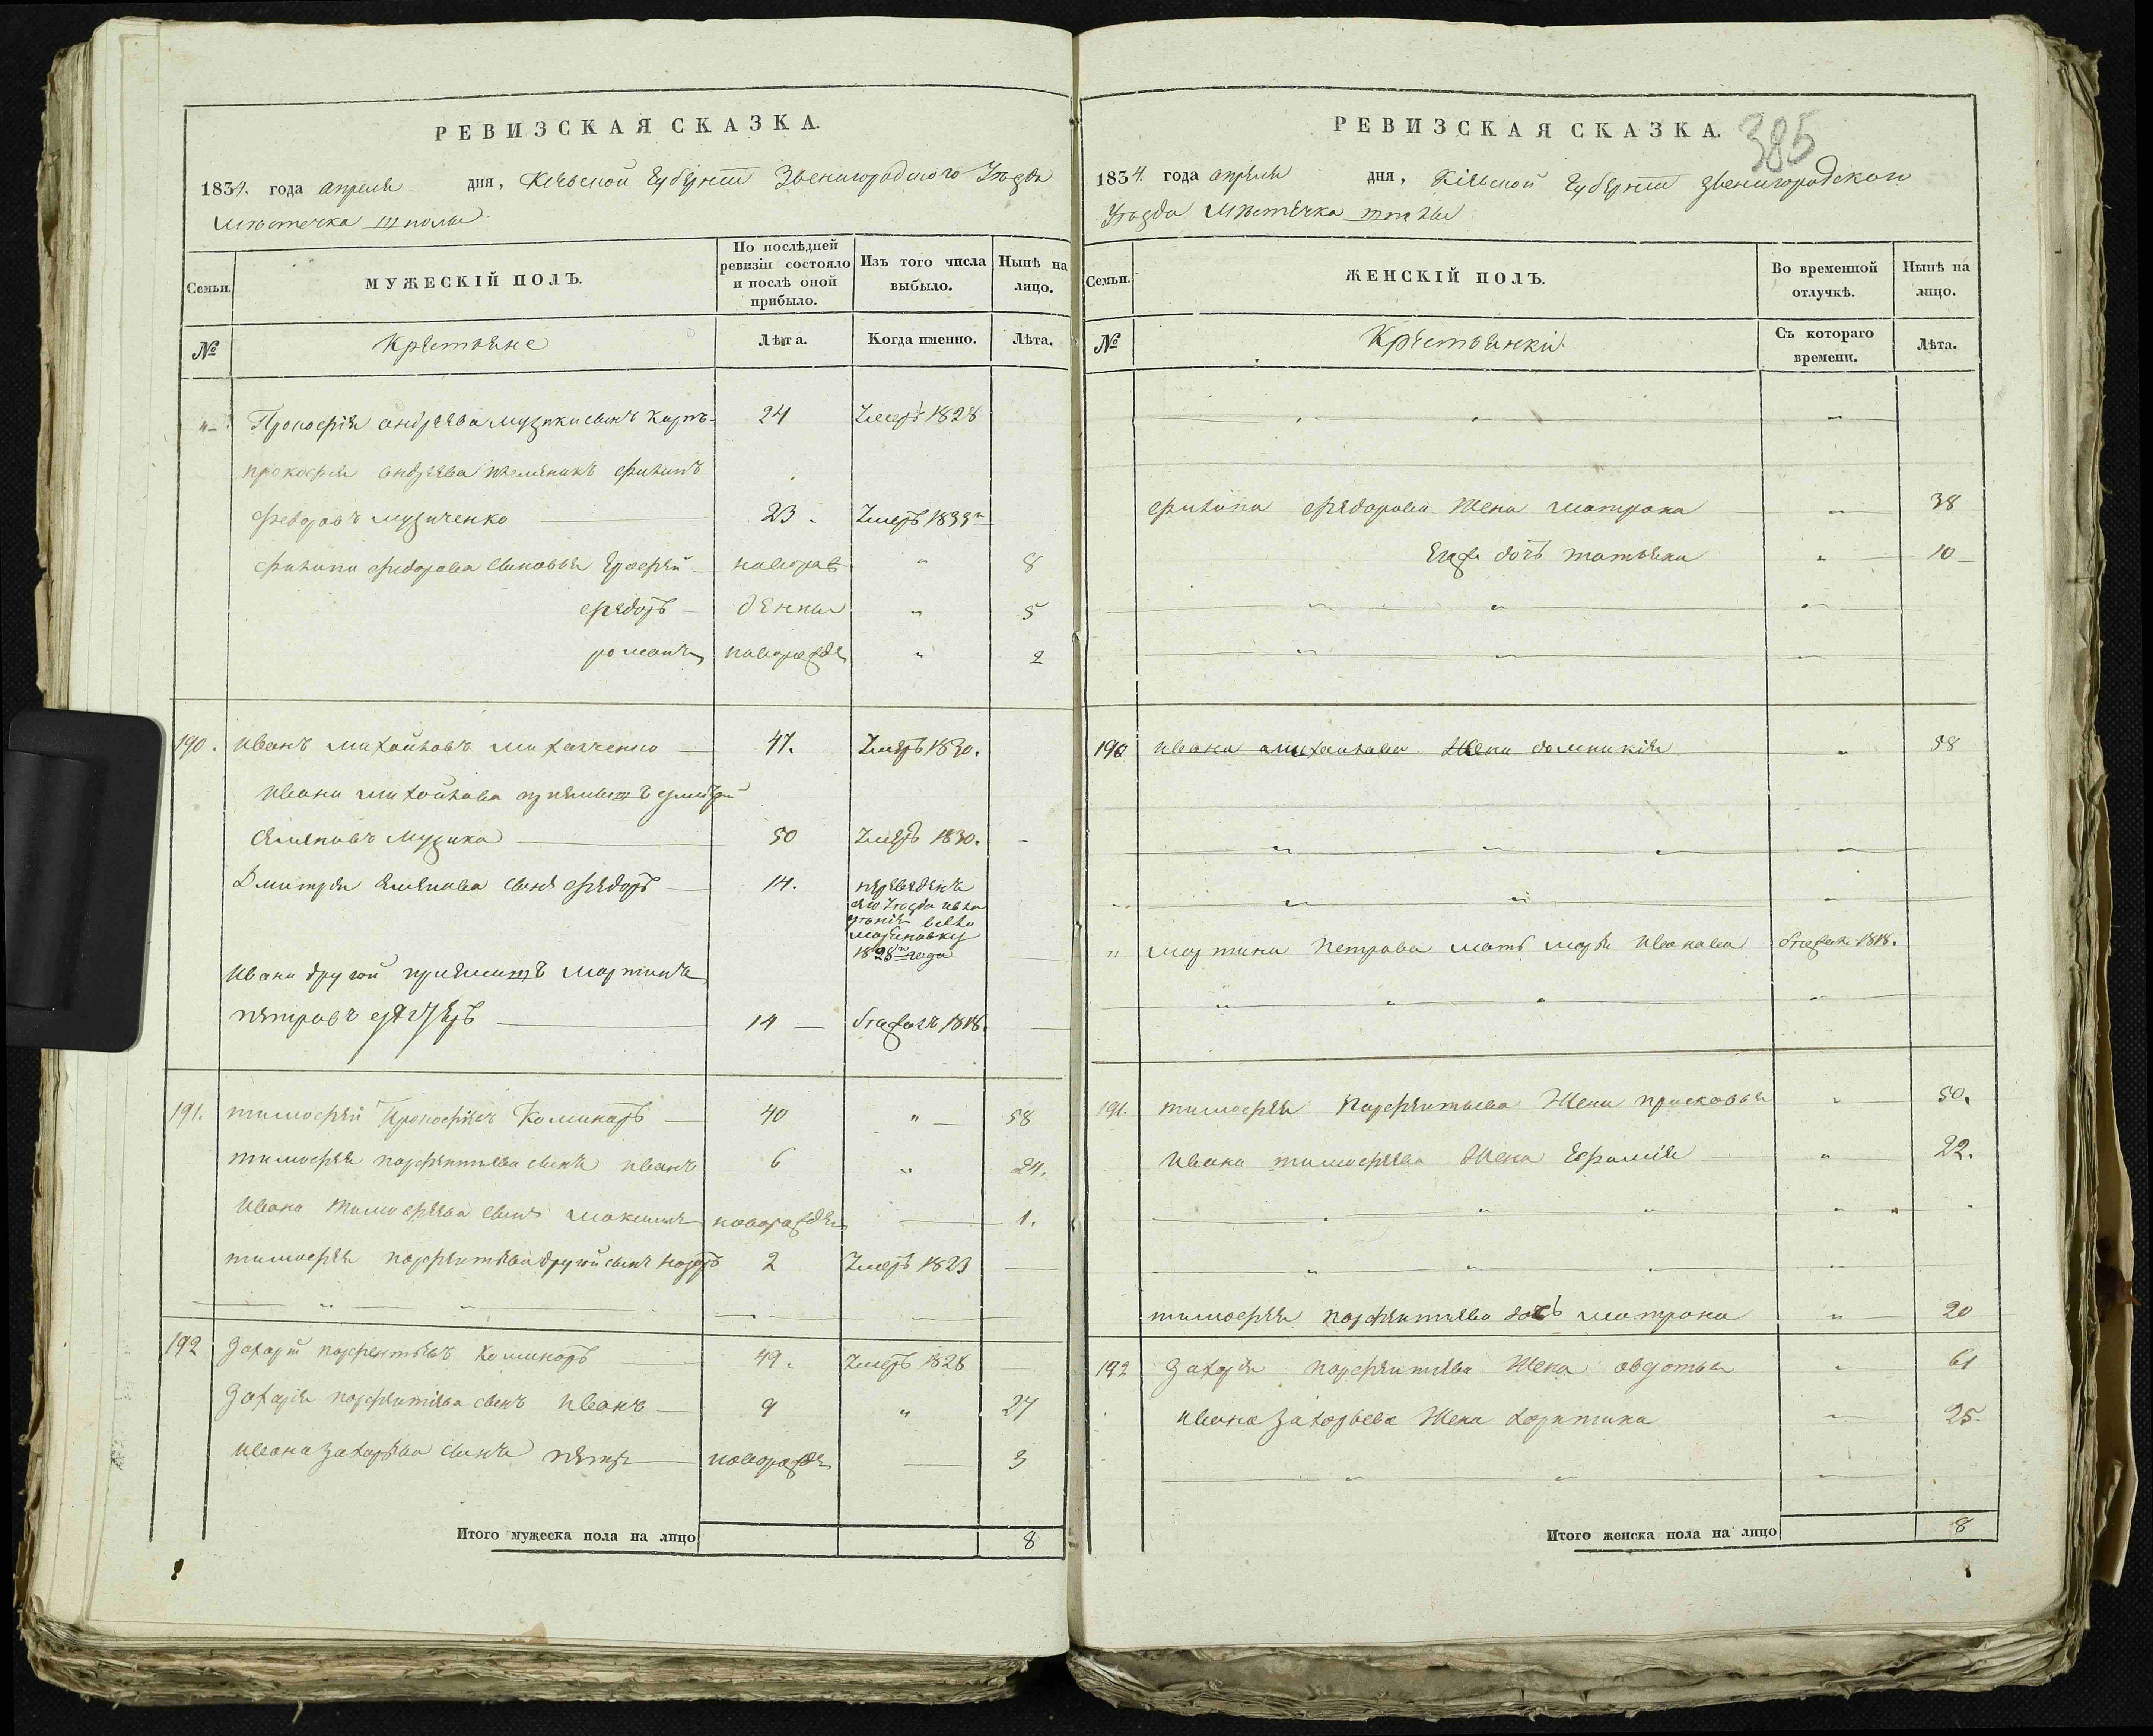 РЕВИЗСКАЯ СКАЗКА.
1834. года апреля дня, Киевской Губернии Звенигородского Уезда
местечка Шполы
Семьи.
МУЖЕСКІЙ ПОЛЪ.
По послѣдней ревизіи состояло и послѣ оной прибыло.
Изъ того числа выбыло.
Нынѣ на лицо.
№
Крестьяне
Лѣта.
Когда именно.
Лѣта.
Прокофія андреева музики сынъ карпъ 24 Умеръ 1828
прокофія андреева племеникъ филипъ
федоровъ музиченко 23 Умеръ 1833
филипа федорова сыновья Ерофей новорож 8
федоръ денныя 5
романъ новорожде 2
190. иванъ михайловъ михалченко 47. Умеръ 1830.
ивана михайлова приемышъ
емельяновъ музика 50 Умеръ 1830.
Дмитрія емельянова сынъ федоръ 14. переведенъ
сего уезда
имения вселко
маряновку
1828 года
ивана другой приемышъ мартинъ
петровъ 14 бежалъ 1818.
191. тимофей Комисаръ 40 58
тимофея парфентьева сынъ иванъ 6 24.
ивана тимофеева сынъ максимъ новорожде 1.
тимофея парфентьева другой сынъ назаръ 2 Умеръ 1823
192 захарій парфентьевъ комисаръ 49. Умеръ 1828
захарія парфентьева сынъ иванъ 9 27
ивана захарьева сынъ петръ новорожде 3
Итого мужеска пола на лицо 8
385
РЕВИЗСКАЯ СКАЗКА.
1834. года апреля дня, Кіевской Губерніи звенигородскаго
Уезда местечка шполы
Семьи.
ЖЕНСКІЙ ПОЛЪ.
Во временной отлучкѣ.
Нынѣ на лицо.
№
Крестьянки
Съ котораго времени.
Лѣта.
филипа федорова жена матрона 38
Его дочь татьяна 10
190 ивана михайлова жена домникія 58
мартина петрова мать марья иванова бежала 1818.
191. тимофея парфентьева жена присковья 50.
ивана тимофеева жена Ефимія 22.
тимофея парфентьева дочь матрона 20
192 захарія парфентьева жена авдотья 61
ивана захарьева жена харитина 25.
Итого женска пола на лицо 8